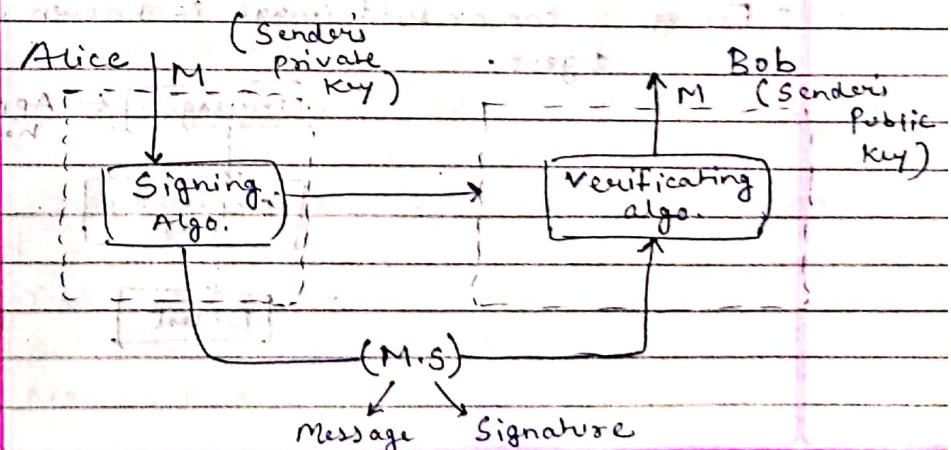 Alice
M
(Sender's
private
Key)
Bob
M
(Sender's
Public
Key)
Signing
Algo.
Verificating
algo.
(M.S)
Message
Signature